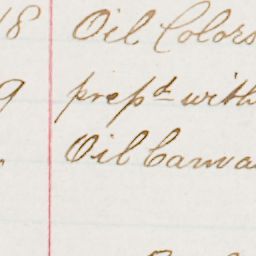 18 Oil Colors
9 prepd with
Oil Canva